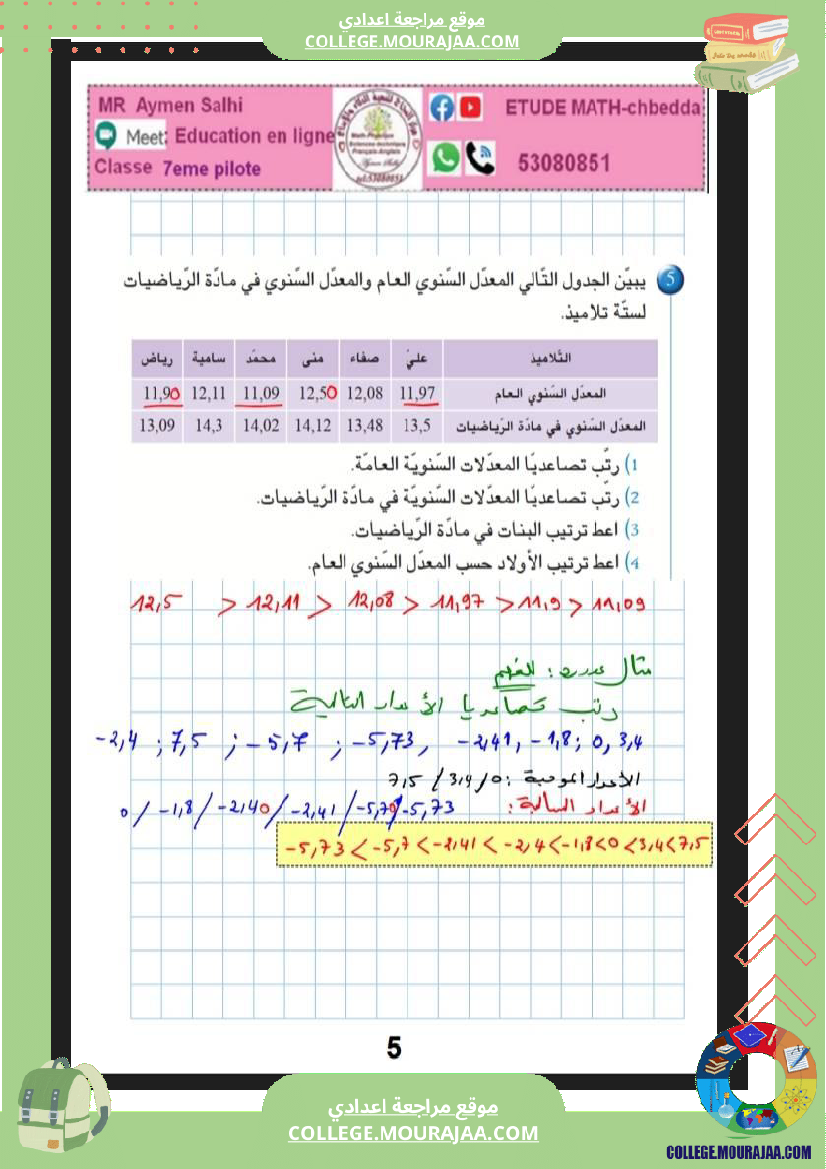 موقع مراجعة اعدادي
COLLEGE.MOURAJAA.COM
MR Aymen Salhi
Meet: Education en ligne
Classe 7eme pilote
ETUDE MATH-chbedda
53080851
5 يبيّن الجدول التّالي المعدّل السّنوي العام والمعدّل السّنوي في مادّة الرّياضيات
لستّة تلاميذ.
التّلاميذ عليّ صفاء منى محمّد سامية رياض
المعدّل السّنوي العام 11,97 12,08 12,50 11,09 12,11 11,90
المعدّل السّنوي في مادّة الرّياضيات 13,5 13,48 14,12 14,02 14,3 13,09
1) رتّب تصاعديّا المعدّلات السّنويّة العامّة.
2) رتّب تصاعديّا المعدّلات السّنويّة في مادّة الرّياضيات.
3) اعط ترتيب البنات في مادّة الرّياضيات.
4) اعط ترتيب الأولاد حسب المعدّل السّنوي العام.
12,5 > 12,11 > 12,08 > 11,97 > 11,9 > 11,09
مثال : للفهم
رتب تصاعديا الأعداد التالية
-2,4 ; 7,5 ; -5,7 ; -5,73, -2,41, -1,8; 0, 3,4
الأعداد الموجبة : 0 / 3,4 / 7,5
الأعداد السالبة:
0 / -1,8 / -2,40 / -2,41 / -5,70 / -5,73
-5,73 < -5,7 < -2,41 < -2,4 < -1,8 < 0 < 3,4 < 7,5
5
موقع مراجعة اعدادي
COLLEGE.MOURAJAA.COM
COLLEGE.MOURAJAA.COM